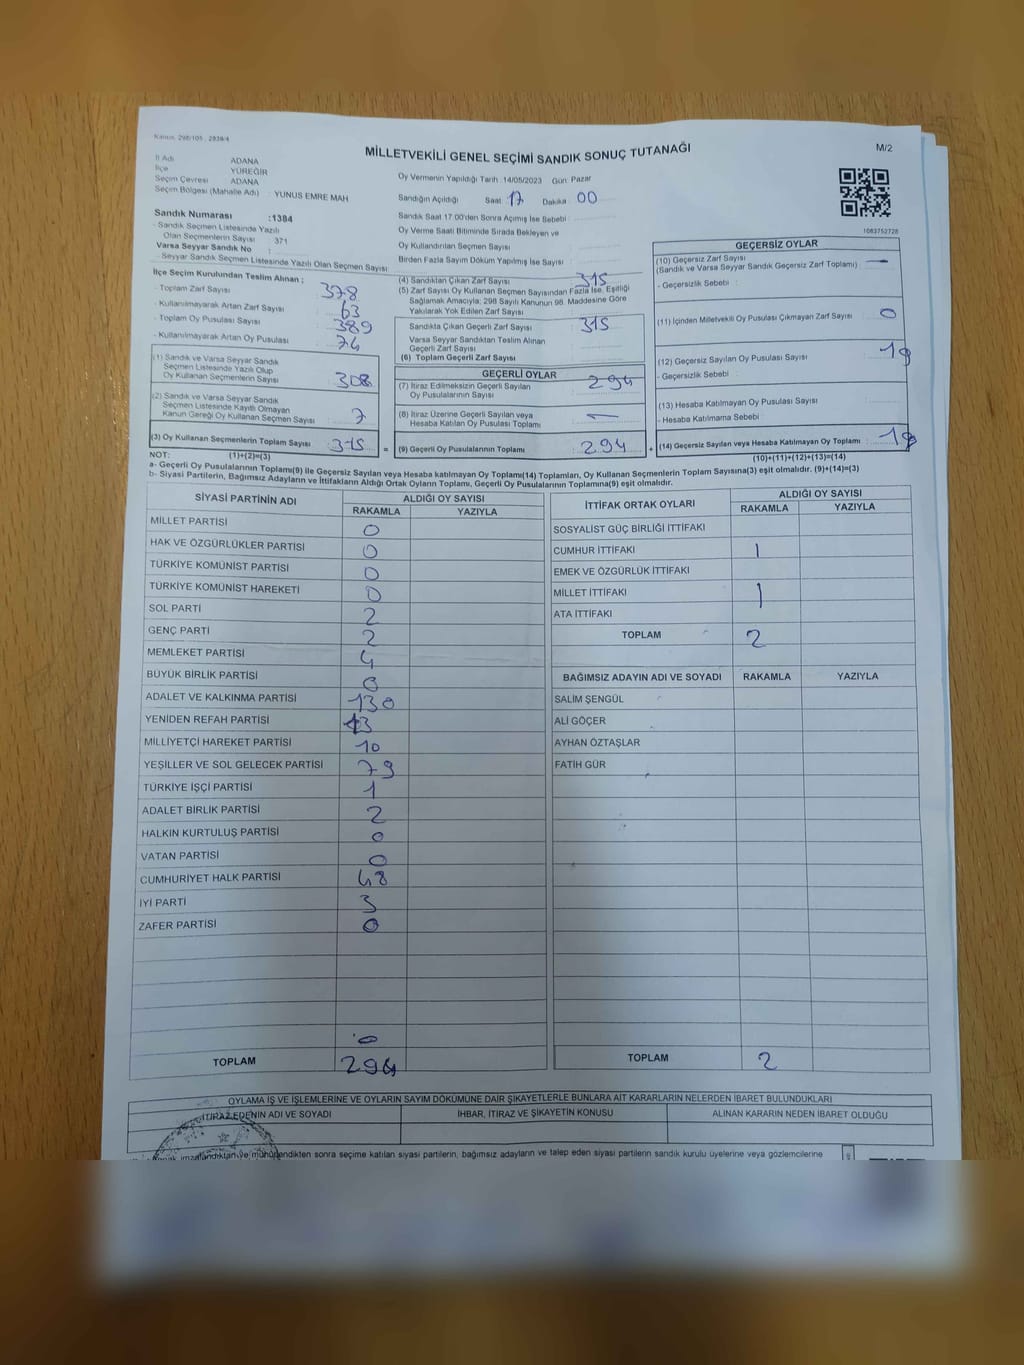 Kanun: 298/105 , 2839/4
MİLLETVEKİLİ GENEL SEÇİMİ SANDIK SONUÇ TUTANAĞI
M/2
İl Adı ADANA
İlçe YÜREĞİR
Seçim Çevresi ADANA
Seçim Bölgesi (Mahalle Adı) : YUNUS EMRE MAH
Sandık Numarası :1384
- Sandık Seçmen Listesinde Yazılı
Olan Seçmenlerin Sayısı 371
Varsa Seyyar Sandık No :
- Seyyar Sandık Seçmen Listesinde Yazılı Olan Seçmen Sayısı:
Oy Vermenin Yapıldığı Tarih :14/05/2023 Gün: Pazar
Sandığın Açıldığı Saat 17 Dakika 00
Sandık Saat 17.00'den Sonra Açımış İse Sebebi :
Oy Verme Saati Bitiminde Sırada Bekleyen ve
Oy Kullandırılan Seçmen Sayısı
Birden Fazla Sayım Döküm Yapılmış İse Sayısı
1083752728
İlçe Seçim Kurulundan Teslim Alınan ;
- Toplam Zarf Sayısı 378
- Kullanılmayarak Artan Zarf Sayısı 63
- Toplam Oy Pusulası Sayısı 389
- Kullanılmayarak Artan Oy Pusulası 74
(1) Sandık ve Varsa Seyyar Sandık
Seçmen Listesinde Yazılı Olup
Oy Kullanan Seçmenlerin Sayısı 308
(2) Sandık ve Varsa Seyyar Sandık
Seçmen Listesinde Kayıtlı Olmayan
Kanun Gereği Oy Kullanan Seçmen Sayısı : 7
(3) Oy Kullanan Seçmenlerin Toplam Sayısı 315 =
(4) Sandıktan Çıkan Zarf Sayısı 315
(5) Zarf Sayısı Oy Kullanan Seçmen Sayısından Fazla İse, Eşitliği
Sağlamak Amacıyla; 298 Sayılı Kanunun 98. Maddesine Göre
Yakılarak Yok Edilen Zarf Sayısı
Sandıkta Çıkan Geçerli Zarf Sayısı 315
Varsa Seyyar Sandıktan Teslim Alınan
Geçerli Zarf Sayısı
(6) Toplam Geçerli Zarf Sayısı
GEÇERLİ OYLAR
(7) İtiraz Edilmeksizin Geçerli Sayılan
Oy Pusulalarının Sayısı : 294
(8) İtiraz Üzerine Geçerli Sayılan veya
Hesaba Katılan Oy Pusulası Toplamı : —
(9) Geçerli Oy Pusulalarının Toplamı : 294 +
GEÇERSİZ OYLAR
(10) Geçersiz Zarf Sayısı : —
(Sandık ve Varsa Seyyar Sandık Geçersiz Zarf Toplamı)
- Geçersizlik Sebebi :
(11) İçinden Milletvekili Oy Pusulası Çıkmayan Zarf Sayısı : 0
(12) Geçersiz Sayılan Oy Pusulası Sayısı : 19
- Geçersizlik Sebebi :
(13) Hesaba Katılmayan Oy Pusulası Sayısı
- Hesaba Katılmama Sebebi
(14) Geçersiz Sayılan veya Hesaba Katılmayan Oy Toplamı : 19
NOT: (1)+(2)=(3) (10)+(11)+(12)+(13)=(14)
a- Geçerli Oy Pusulalarının Toplamı(9) ile Geçersiz Sayılan veya Hesaba katılmayan Oy Toplamı(14) Toplamları, Oy Kullanan Seçmenlerin Toplam Sayısına(3) eşit olmalıdır. (9)+(14)=(3)
b- Siyasi Partilerin, Bağımsız Adayların ve İttifakların Aldığı Ortak Oyların Toplamı, Geçerli Oy Pusulalarının Toplamına(9) eşit olmalıdır.
SİYASİ PARTİNİN ADI ALDIĞI OY SAYISI
RAKAMLA YAZIYLA
MİLLET PARTİSİ 0
HAK VE ÖZGÜRLÜKLER PARTİSİ 0
TÜRKİYE KOMÜNİST PARTİSİ 0
TÜRKİYE KOMÜNİST HAREKETİ 0
SOL PARTİ 2
GENÇ PARTİ 2
MEMLEKET PARTİSİ 4
BÜYÜK BİRLİK PARTİSİ 0
ADALET VE KALKINMA PARTİSİ 130
YENİDEN REFAH PARTİSİ 13
MİLLİYETÇİ HAREKET PARTİSİ 10
YEŞİLLER VE SOL GELECEK PARTİSİ 79
TÜRKİYE İŞÇİ PARTİSİ 1
ADALET BİRLİK PARTİSİ 2
HALKIN KURTULUŞ PARTİSİ 0
VATAN PARTİSİ 0
CUMHURİYET HALK PARTİSİ 48
İYİ PARTİ 3
ZAFER PARTİSİ 0
0
TOPLAM 294
İTTİFAK ORTAK OYLARI ALDIĞI OY SAYISI
RAKAMLA YAZIYLA
SOSYALİST GÜÇ BİRLİĞİ İTTİFAKI
CUMHUR İTTİFAKI 1
EMEK VE ÖZGÜRLÜK İTTİFAKI
MİLLET İTTİFAKI 1
ATA İTTİFAKI
TOPLAM 2
BAĞIMSIZ ADAYIN ADI VE SOYADI RAKAMLA YAZIYLA
SALİM ŞENGÜL
ALİ GÖÇER
AYHAN ÖZTAŞLAR
FATİH GÜR
TOPLAM 2
OYLAMA İŞ VE İŞLEMLERİNE VE OYLARIN SAYIM DÖKÜMÜNE DAİR ŞİKAYETLERLE BUNLARA AİT KARARLARIN NELERDEN İBARET BULUNDUKLARI
İTİRAZ EDENİN ADI VE SOYADI İHBAR, İTİRAZ VE ŞİKAYETİN KONUSU ALINAN KARARIN NEDEN İBARET OLDUĞU
imzalandıktan ve mühürlendikten sonra seçime katılan siyasi partilerin, bağımsız adayların ve talep eden siyasi partilerin sandık kurulu üyelerine veya gözlemcilerine